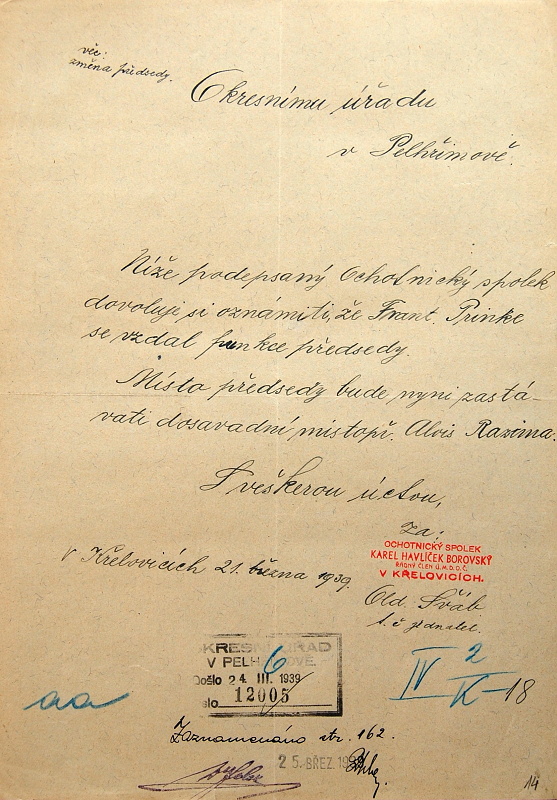 věc:
změna předsedy.
Okresnímu úřadu
v Pelhřimově.
Níže podepsaný Ochotnický spolek
dovoluji si oznámiti, že Frant. Prinke
se vzdal funkce předsedy.
Místo předsedy bude nyní zastá-
vati dosavadní místopř. Alois
S veškerou úctou,
Za:
OCHOTNICKÝ SPOLEK
KAREL HAVLÍČEK BOROVSKÝ
ŘÁDNÝ ČLEN Ú.M.D.O.Č.
V KŘELOVICÍCH.
V Křelovicích 21. března 1939.
Old. Šváb
t. č. jednatel.
OKRESNÍ ÚŘAD
V PELHŘIMOVĚ.
6
Došlo 24 III. 1939
Číslo 12005
IV 2/K-18
aa
Zaznamenáno str. 162.
25. BŘEZ. 1939
14